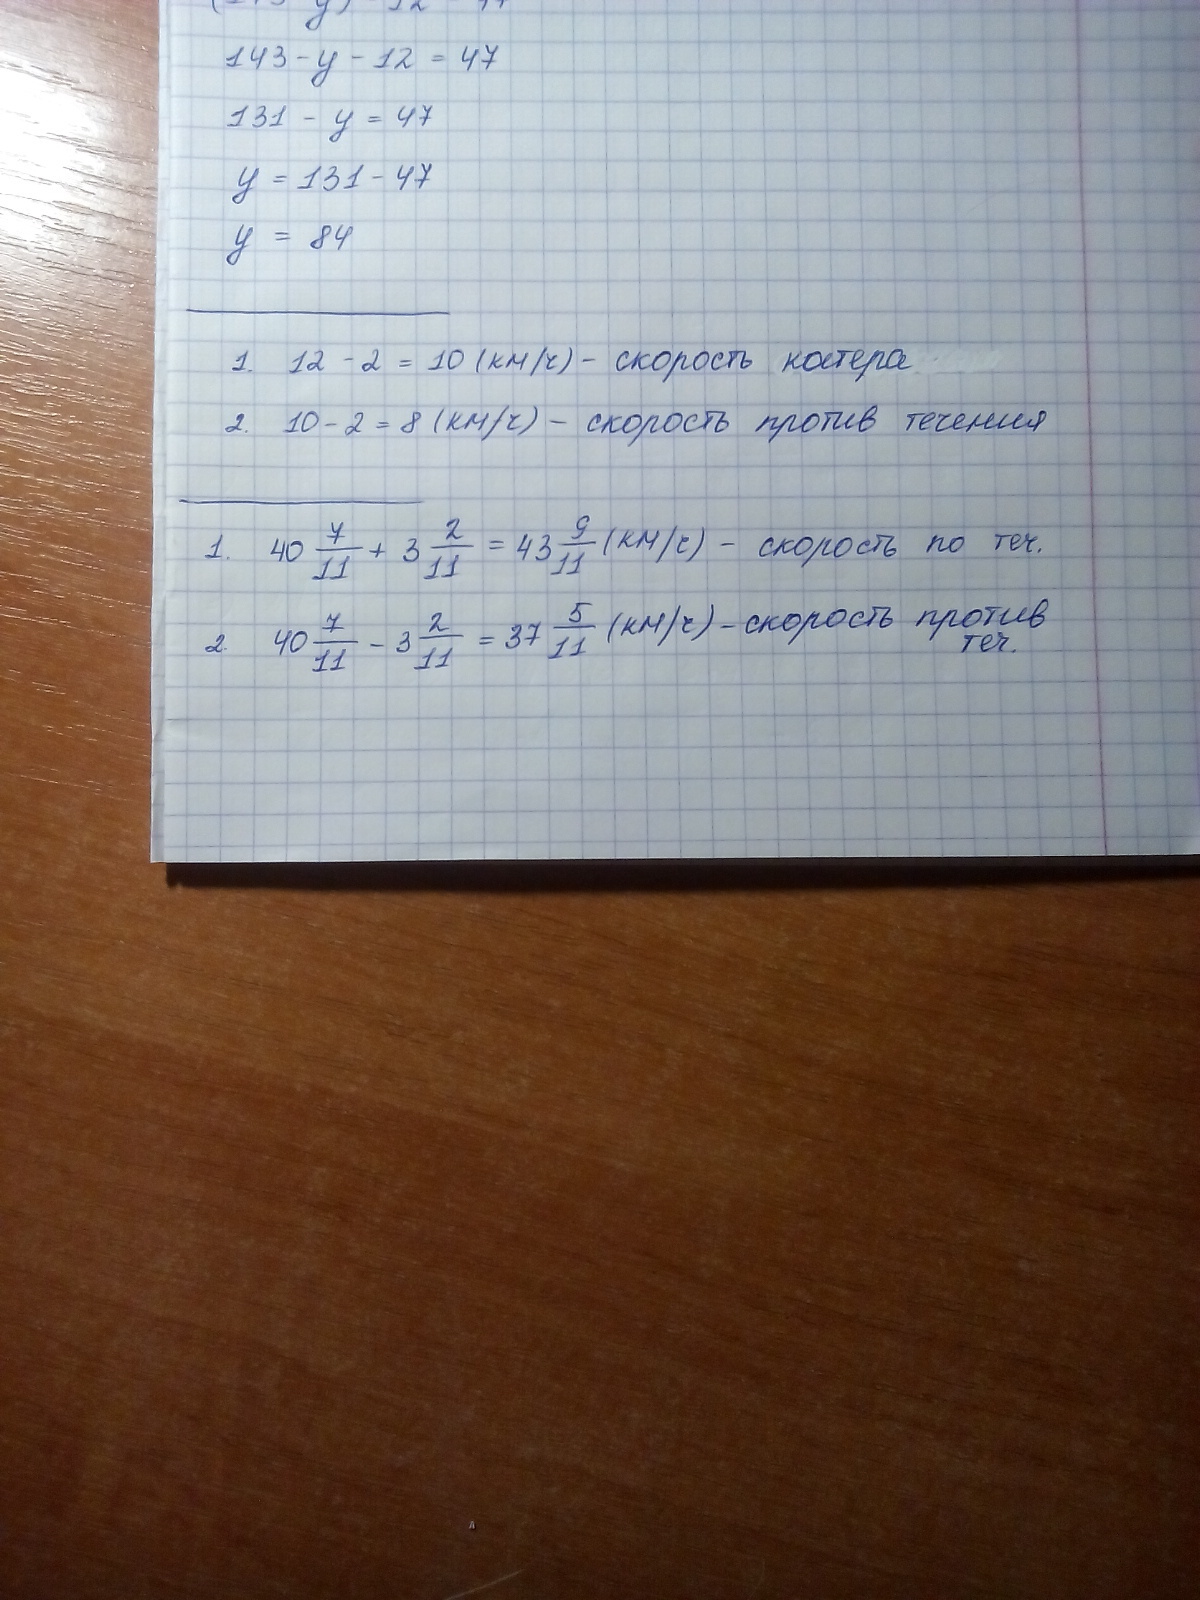 (143 - y) - 12 = 47
143 - y - 12 = 47
131 - y = 47
y = 131 - 47
y = 84
1. 12 - 2 = 10 (км/ч) - скорость катера
2. 10 - 2 = 8 (км/ч) - скорость против течения
1. 40 7/11 + 3 2/11 = 43 9/11 (км/ч) - скорость по теч.
2. 40 7/11 - 3 2/11 = 37 5/11 (км/ч) - скорость против
теч.